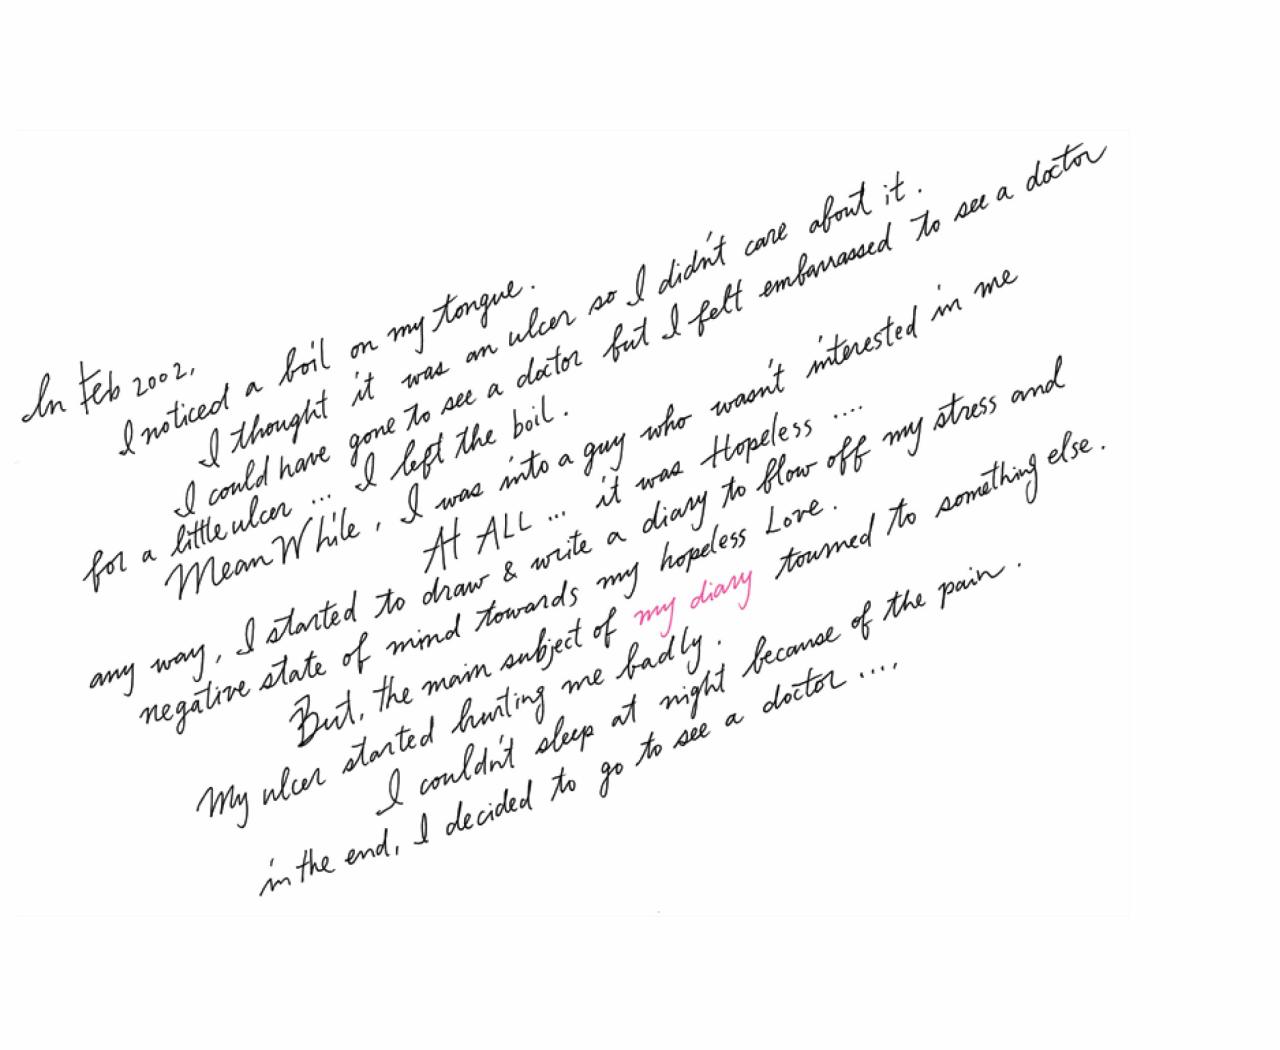 In Feb 2002,
I noticed a boil on my tongue.
I thought it was an ulcer so I didn't care about it.
I could have gone to see a doctor but I felt embarrassed to see a doctor
for a little ulcer ... I left the boil.
MeanWhile, I was into a guy who wasn't interested in me
At ALL ... it was Hopeless ....
any way, I started to draw & write a diary to blow off my stress and
negative state of mind towards my hopeless Love.
But, the main subject of my diary tourned to something else.
My ulcer started hurting me badly.
I couldn't sleep at night because of the pain.
in the end, I decided to go to see a doctor ....